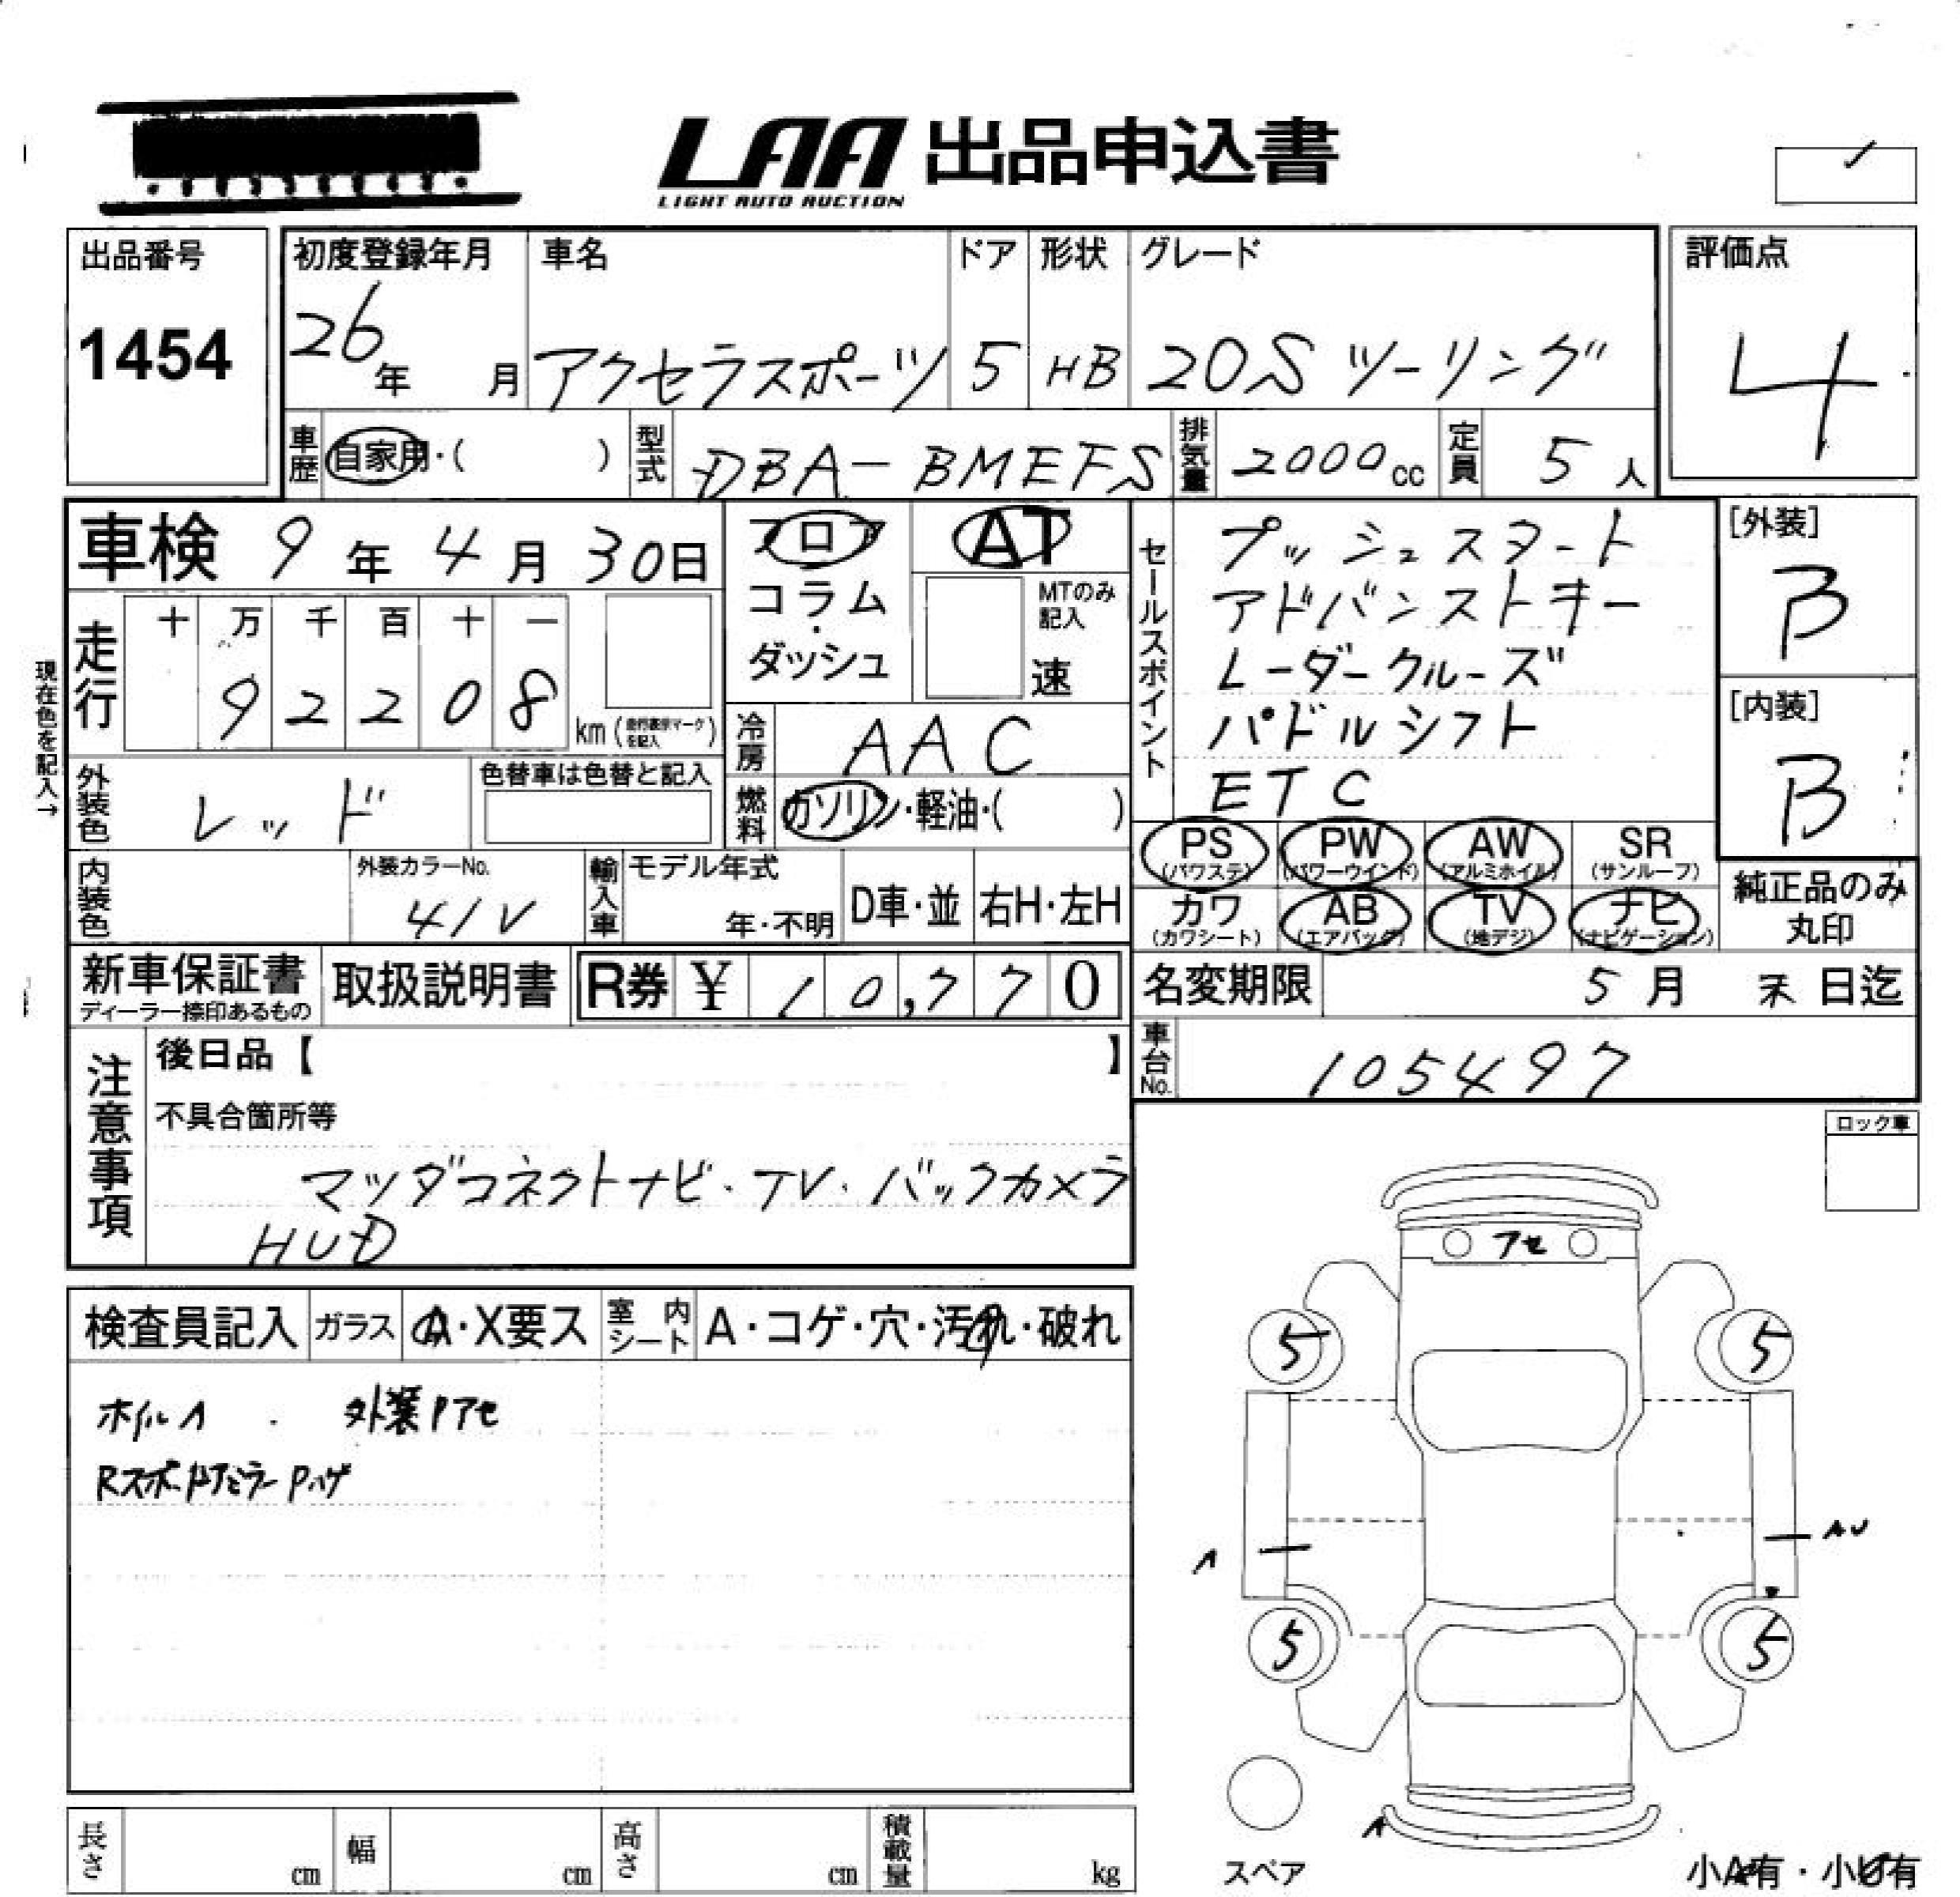 LAA 出品申込書
LIGHT AUTO AUCTION
出品番号
1454
初度登録年月
26年 月
車名
アクセラスポーツ
ドア
5
形状
HB
グレード
20S ツーリング
評価点
4
車歴 自家用・( )
型式 DBA-BMEFS
排気量 2000cc
定員 5人
車検 9年 4月 30日
フロア
コラム
・
ダッシュ
AT
MTのみ
記入
速
セールスポイント
プッシュスタート
アドバンストキー
レーダークルーズ
パドルシフト
ETC
[外装]
B
[内装]
B
現在色を記入→
走行
十 万 千 百 十 一
9 2 2 0 8
km(走行表示マークを記入)
冷房 AAC
燃料 ガソリン・軽油・( )
外装色 レッド
色替車は色替と記入
内装色
外装カラーNo.
41V
輸入車
モデル年式
年・不明
D車・並
右H・左H
PS
(パワステ)
PW
(パワーウインド)
AW
(アルミホイル)
SR
(サンルーフ)
カワ
(カワシート)
AB
(エアバッグ)
TV
(地デジ)
ナビ
(ナビゲーション)
純正品のみ
丸印
新車保証書
ディーラー捺印あるもの
取扱説明書
R券 ¥ 10,770
名変期限 5月 末日迄
車台No. 105497
注意事項
後日品【 】
不具合箇所等
マツダコネクトナビ・TV・バックカメラ
HUD
ロック車
検査員記入
ガラス A・X要ス
室内シート A・コゲ・穴・汚れ・破れ
ホイルA ・ 外装Pアセ
RスポードアミラーPハゲ
アセ
5 5
A AU
5 5
A
スペア
小A有・小U有
長さ cm
幅 cm
高さ cm
積載量 kg